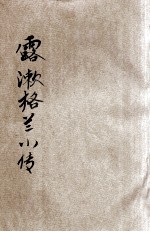 露漱格兰小传